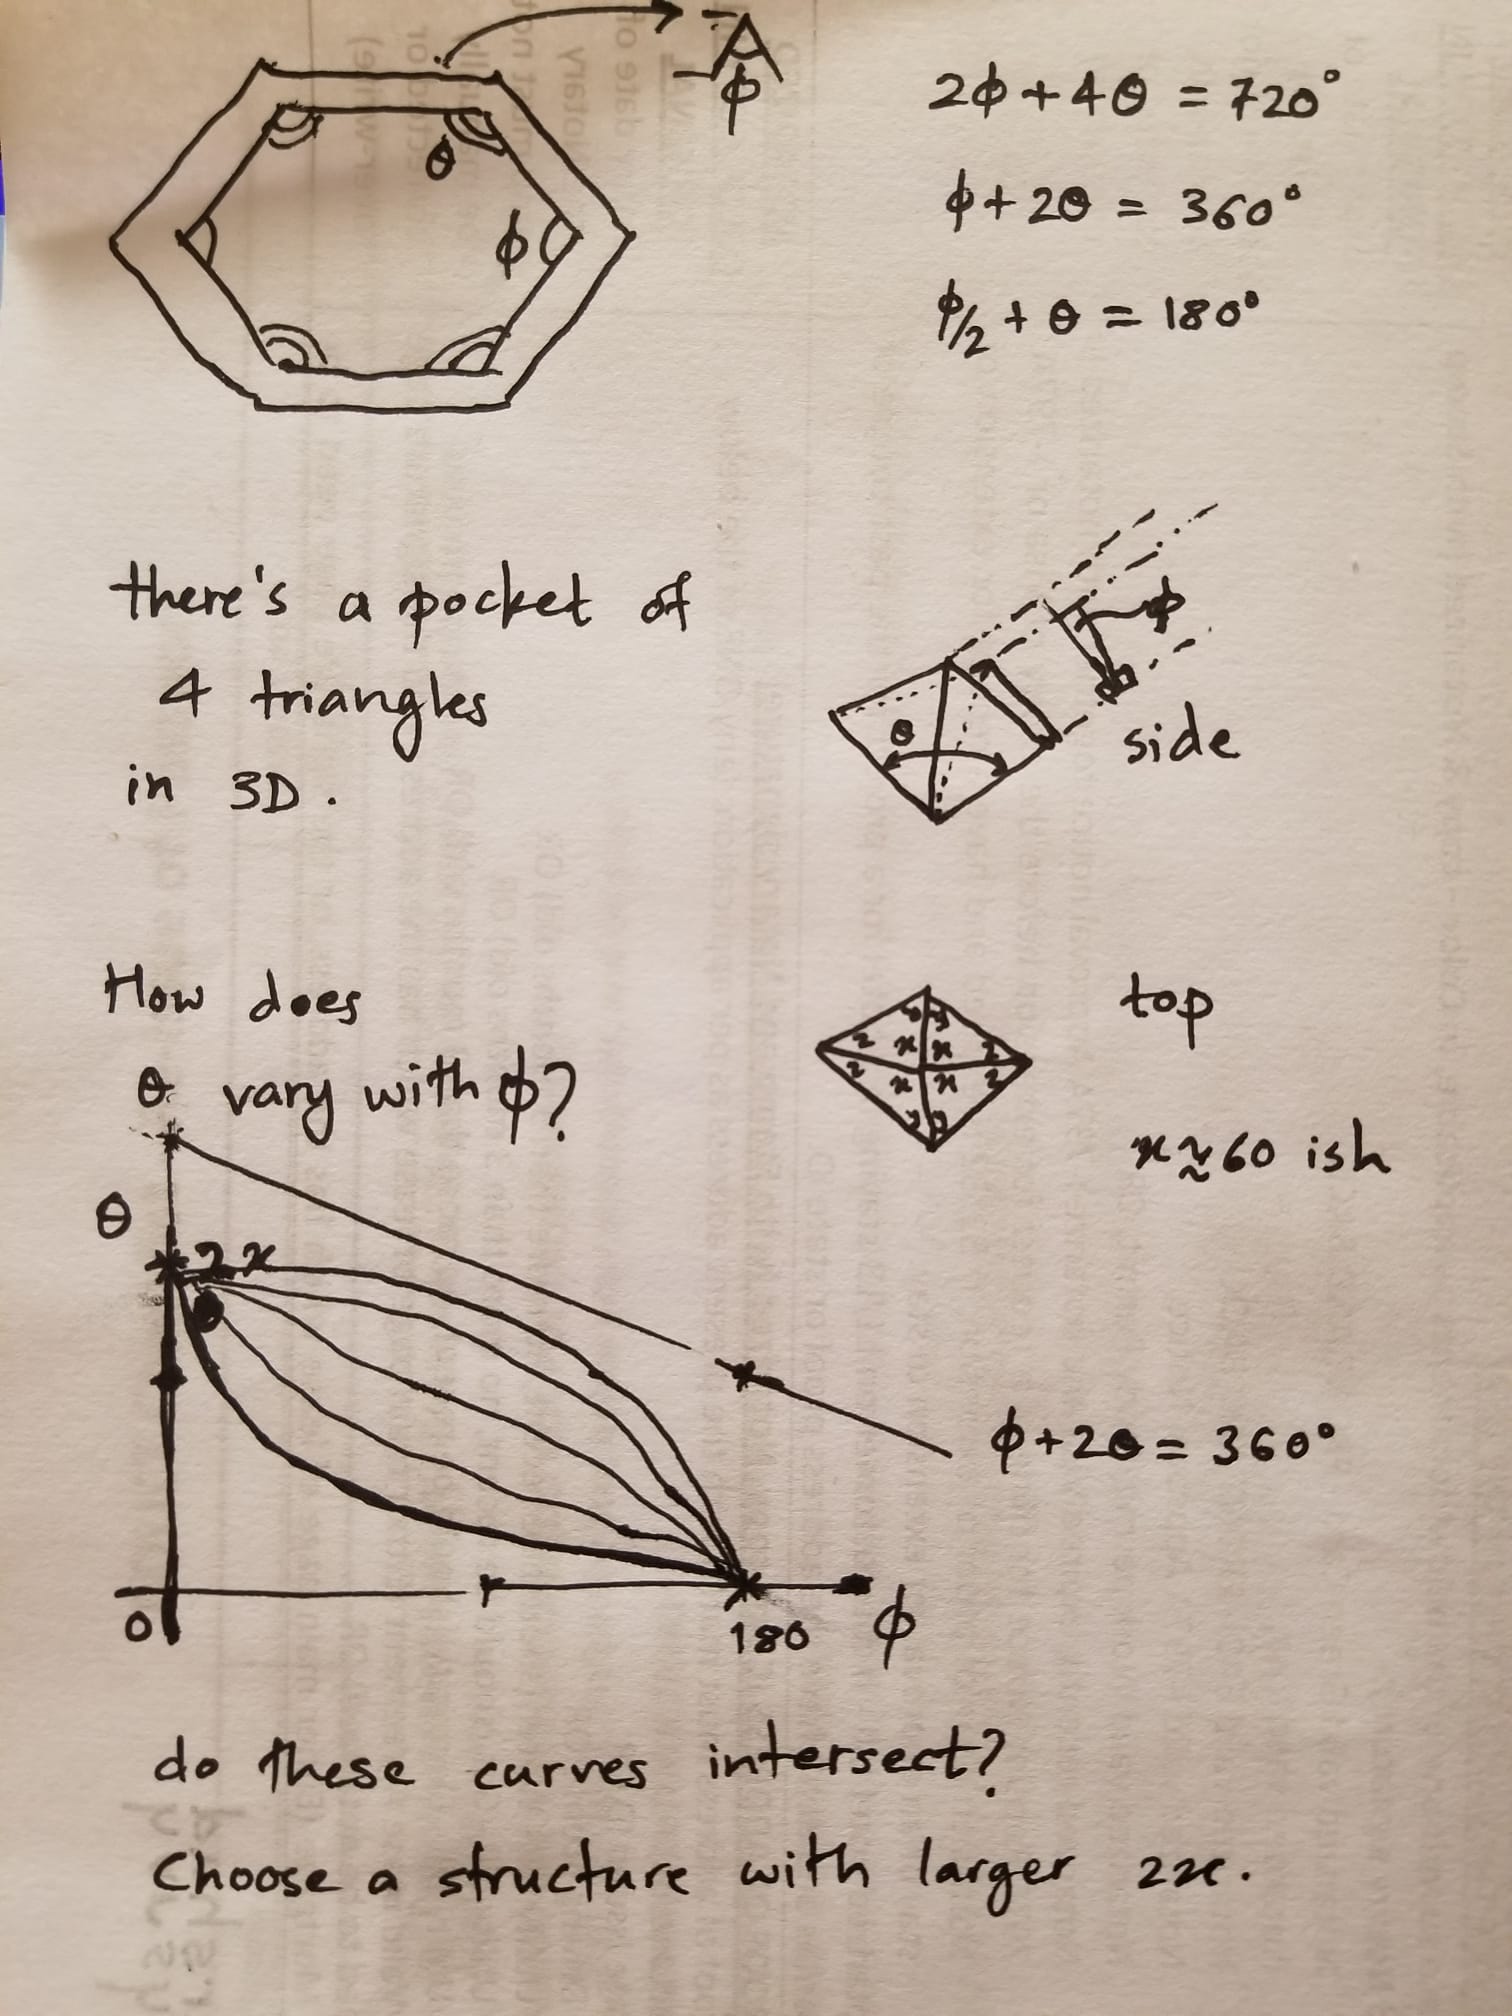 ϕ
2ϕ + 4θ = 720°
θ
ϕ
ϕ + 2θ = 360°
ϕ/2 + θ = 180°
there's a pocket of
4 triangles
in 3D.
ϕ
θ
side
How does
θ vary with ϕ?
top
y y
z x x z
z x x z
y y
x ≈ 60 ish
θ
2x
ϕ + 2θ = 360°
0
180
ϕ
do these curves intersect?
Choose a structure with larger 2x.